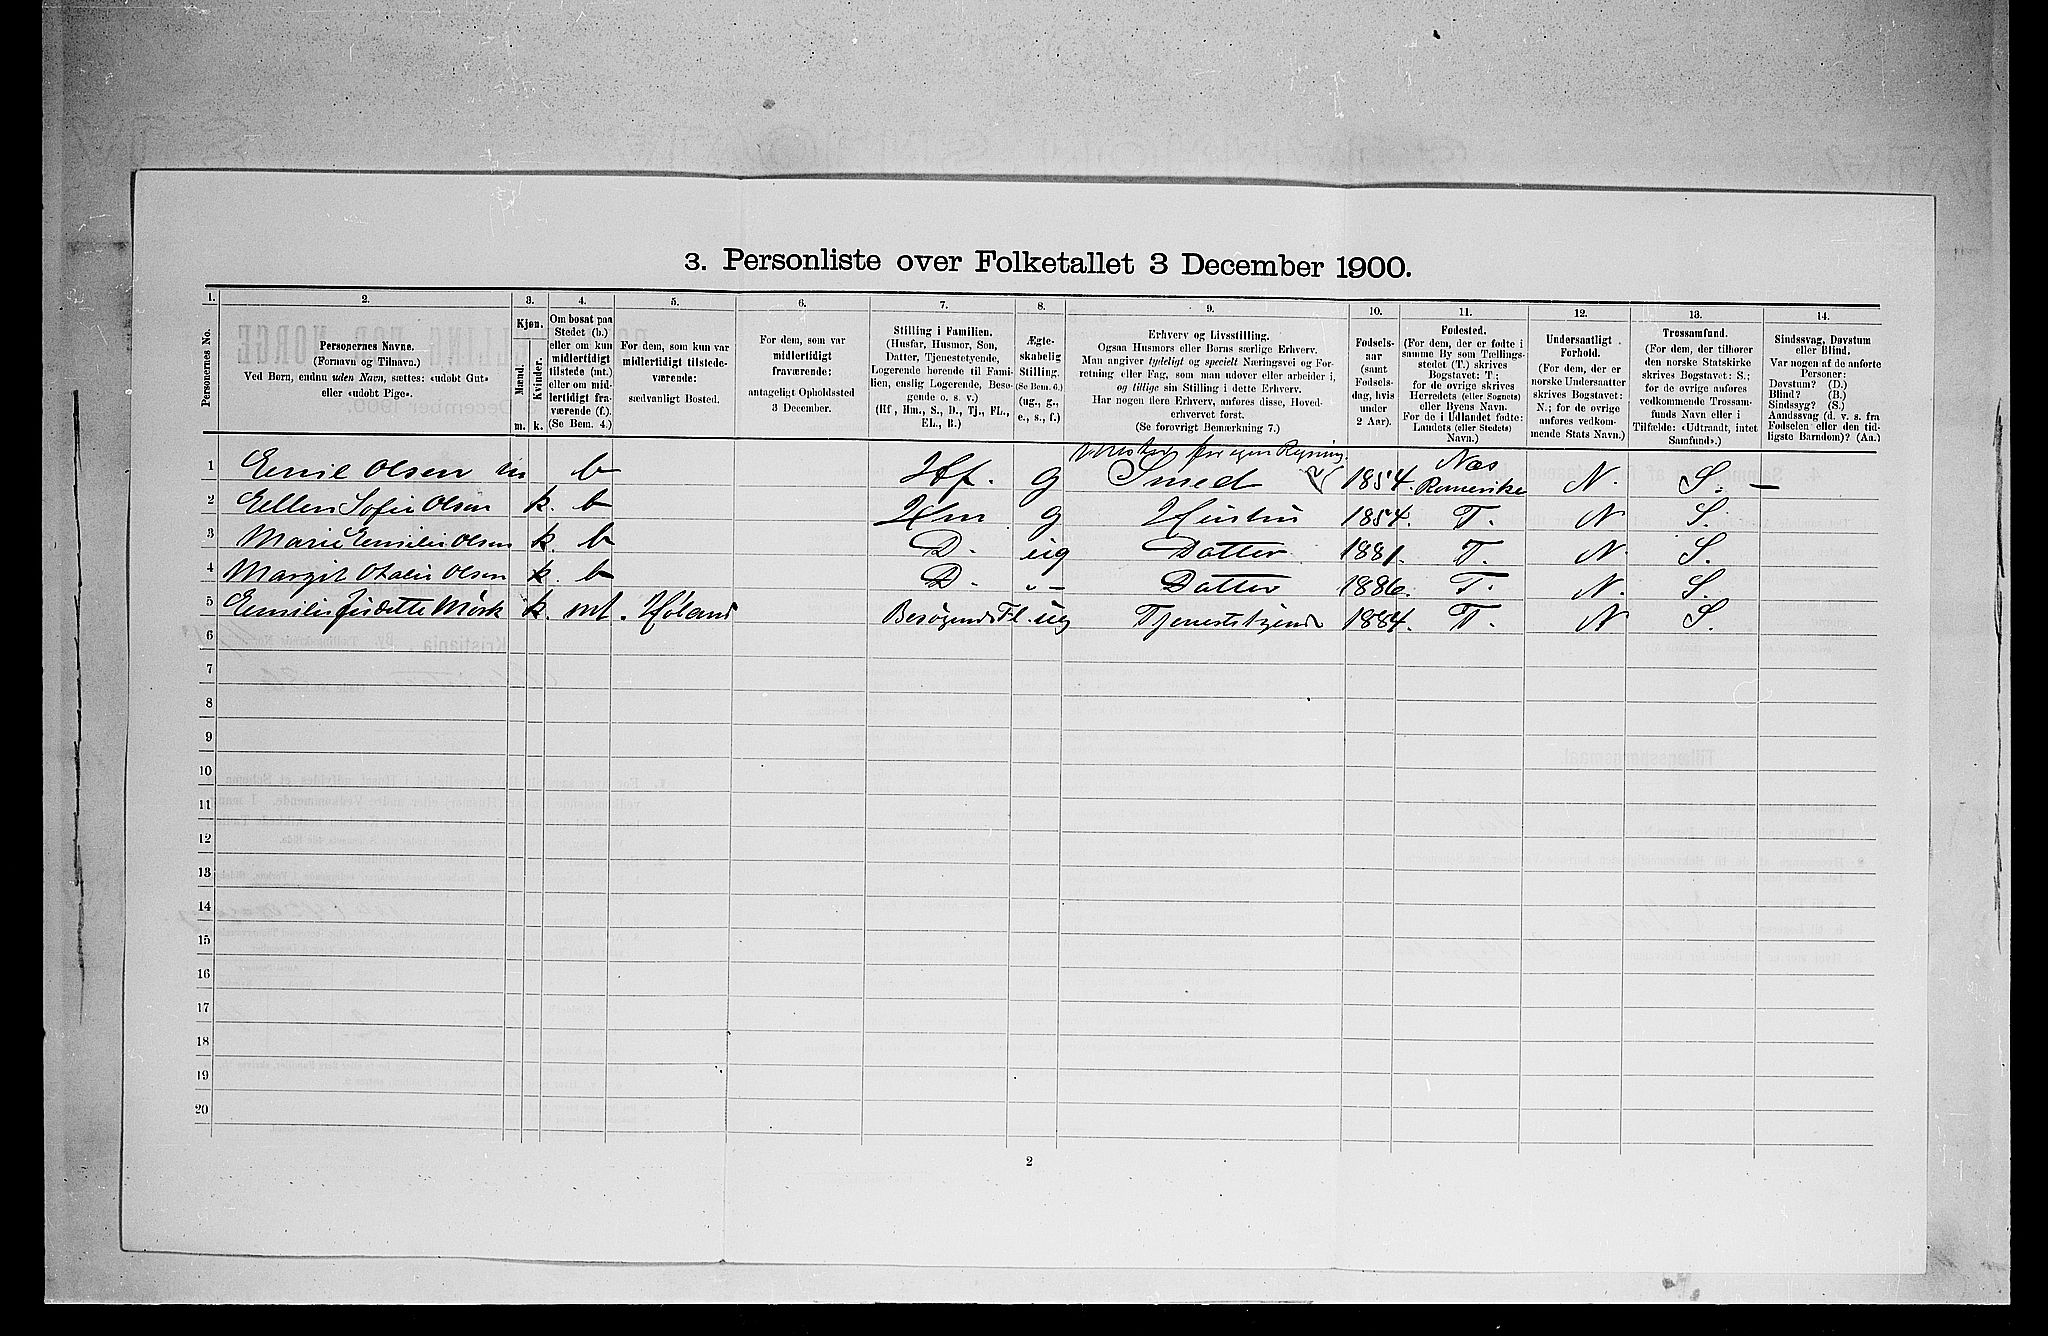 3. Personliste over Folketallet 3 December 1900.
1. 2. 3. 4. 5. 6. 7. 8. 9. 10. 11. 12. 13. 14.
Personernes No.
Personernes Navne.
(Fornavn og Tilnavn.)
Ved Børn, endnu uden Navn, sættes: «udøbt Gut»
eller «udøbt Pige».
Kjøn.
Mænd.
Kvinder.
m. k.
Om bosat paa
Stedet (b.)
eller om kun
midlertidigt
tilstede (mt.)
eller om mid-
lertidigt fra-
værende (f.).
(Se Bem. 4.)
For dem, som kun var
midlertidigt tilstede-
værende:
sædvanligt Bosted.
For dem, som var
midlertidigt
fraværende:
antageligt Opholdssted
3 December.
Stilling i Familien.
(Husfar, Husmor, Søn,
Datter, Tjenestetyende,
Logerende hørende til Fami-
lien, enslig Logerende, Besø-
gende o. s. v.)
(Hf., Hm., S., D., Tj., FL.,
EL., B.)
Ægte-
skabelig
Stilling.
(Se Bem. 6.)
(ug., g.,
e., s., f.)
Erhverv og Livsstilling.
Ogsaa Husmors eller Børns særlige Erhverv.
Man angiver tydeligt og specielt Næringsvei og For-
retning eller Fag, som man udøver eller arbeider i,
og tillige sin Stilling i dette Erhverv.
Har nogen flere Erhverv, anføres disse, Hoved-
erhvervet først.
(Se forøvrigt Bemærkning 7.)
Fødsels-
aar
(samt
Fødsels-
dag, hvis
under
2 Aar).
Fødested.
(For dem, der er fødte i
samme By som Tællings-
stedet (T.) skrives
Bogstavet: T;
for de øvrige skrives
Herredets (eller Sognets)
eller Byens Navn.
For de i Udlandet fødte:
Landets (eller Stedets)
Navn.)
Undersaatligt
Forhold.
(For dem, der er
norske Undersaatter
skrives Bogstavet:
N.; for de øvrige
anføres vedkom-
mende Stats Navn.)
Trossamfund.
(For dem, der tilhører
den norske Statskirke
skrives Bogstavet: S.;
for de øvrige anføres
vedkommende Trossam-
funds Navn eller i
Tilfælde: «Udtraadt, intet
Samfund».)
Sindssvag, Døvstum
eller Blind.
Var nogen af de anførte
Personer:
Døvstum? (D.)
Blind? (B.)
Sindssyg? (S.)
Aandssvag (d. v. s. fra
Fødselen eller den tid-
ligste Barndom)? (Aa.)
for egen Regning
1 Emil Olsen m b Hf. g Smed 1854. Næs Romerike N. S. —
2 Ellen Sofie Olsen k. b Hm g Hustru 1854. T. N S.
3 Marie Emilie Olsen k. b D. ug Datter 1881. T. N. S.
4 Margit Otalie Olsen k. b D. „ – Datter 1886. T. N. S.
5 Emilie Mørk k. mt. Høland Besøgende Fl. ug Tjenestetyende 1884. T. N S.
6
7
8
9
10
11
12
13
14
15
16
17
18
19
20
2